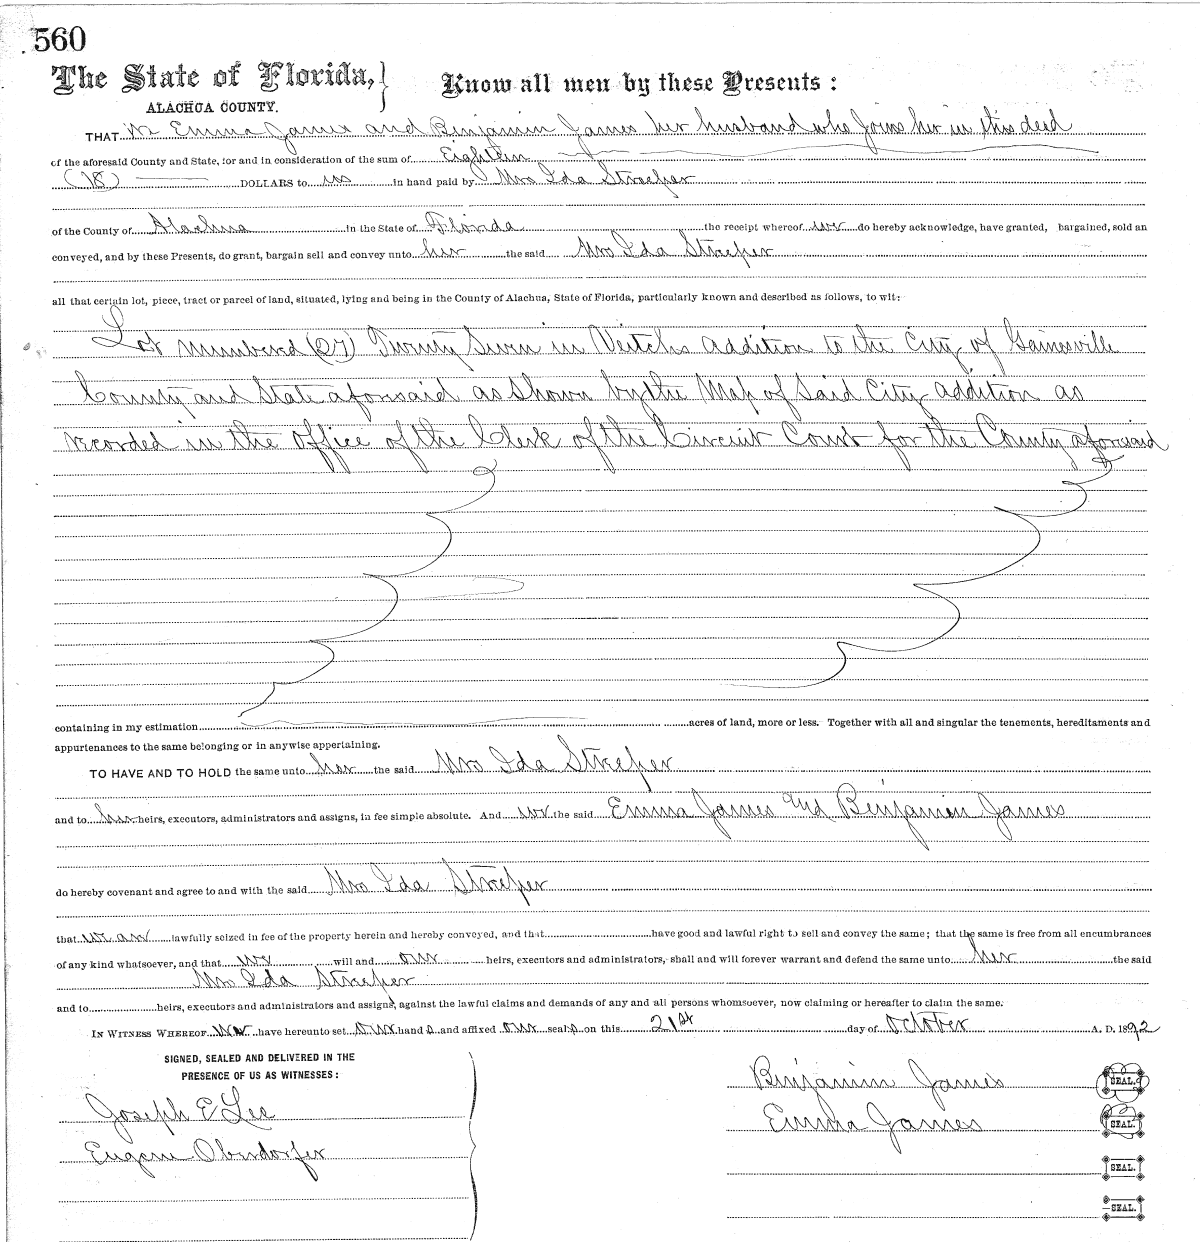 560
The State of Florida, } Know all men by these Presents :
ALACHUA COUNTY.
THAT We Emma James and Benjamin James her husband who Joins her in this deed
of the aforesaid County and State, for and in consideration of the sum of Eighteen
(18) DOLLARS to us in hand paid by Mrs Ida Streeper
of the County of Alachua in the State of Florida the receipt whereof we do hereby acknowledge, have granted, bargained, sold an
conveyed, and by these Presents, do grant, bargain sell and convey unto her the said Mrs Ida Streeper
all that certain lot, piece, tract or parcel of land, situated, lying and being in the County of Alachua, State of Florida, particularly known and described as follows, to wit:
Lot numbered (27) Twenty Seven in Veitchs addition to the City of Gainesville
County and State aforesaid as Shown by the Map of Said City addition as
recorded in the office of the Clerk of the Circuit Court for the County aforesaid
containing in my estimation acres of land, more or less. Together with all and singular the tenements, hereditaments and
appurtenances to the same belonging or in anywise appertaining.
TO HAVE AND TO HOLD the same unto her the said Mrs Ida Streeper
and to her heirs, executors, administrators and assigns, in fee simple absolute. And we the said Emma James and Benjamin James
do hereby covenant and agree to and with the said Mrs Ida Streeper
that we are lawfully seized in fee of the property herein and hereby conveyed, and that have good and lawful right to sell and convey the same; that the same is free from all encumbrances
of any kind whatsoever, and that we will and our heirs, executors and administrators, shall and will forever warrant and defend the same unto her the said
Mrs Ida Streeper
and to heirs, executors and administrators and assigns, against the lawful claims and demands of any and all persons whomsoever, now claiming or hereafter to claim the same.
IN WITNESS WHEREOF We have hereunto set our hands and affixed our seals on this 21st day of October A. D. 1892
SIGNED, SEALED AND DELIVERED IN THE
PRESENCE OF US AS WITNESSES :
Joseph E Lee
Eugene Oberdorfer
Benjamin James SEAL.
Emma James SEAL.
SEAL.
SEAL.